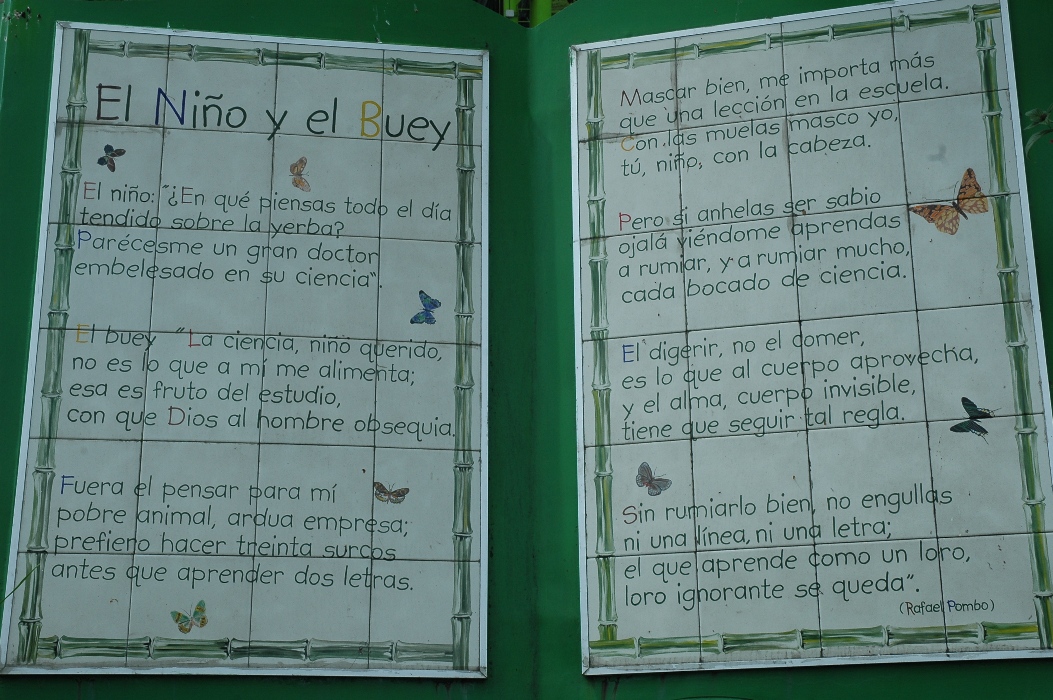 El Niño y el Buey
El niño: "¿En qué piensas todo el día
tendido sobre la yerba?
Parécesme un gran doctor
embelesado en su ciencia".
El buey "La ciencia, niño querido,
no es lo que a mí me alimenta;
esa es fruto del estudio,
con que Dios al hombre obsequia.
Fuera el pensar para mí
pobre animal, ardua empresa;
prefiero hacer treinta surcos
antes que aprender dos letras.
Mascar bien, me importa más
que una lección en la escuela.
Con las muelas masco yo,
tú, niño, con la cabeza.
Pero si anhelas ser sabio
ojalá viéndome aprendas
a rumiar, y a rumiar mucho,
cada bocado de ciencia.
El digerir, no el comer,
es lo que al cuerpo aprovecha,
y el alma, cuerpo invisible,
tiene que seguir tal regla.
Sin rumiarlo bien, no engullas
ni una línea, ni una letra;
el que aprende como un loro,
loro ignorante se queda".
(Rafael Pombo)